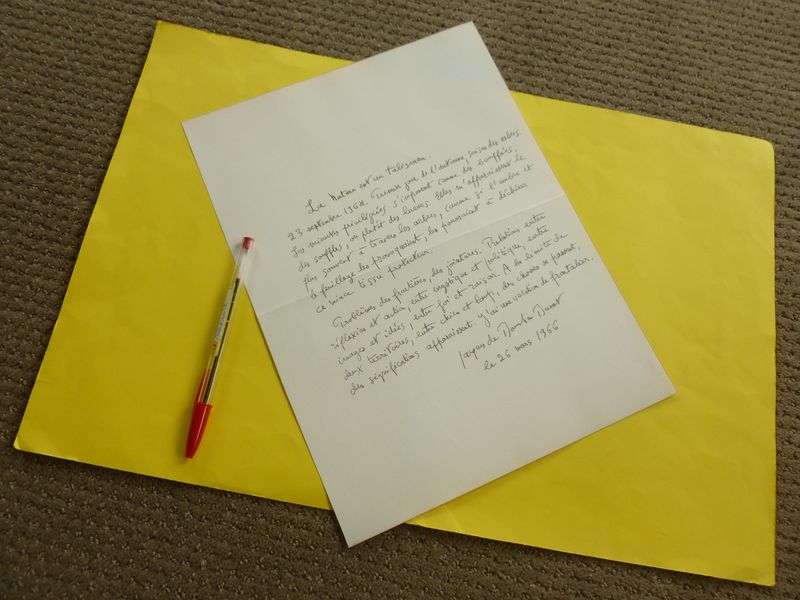 La Nature est un télésoreen.
23 septembre 1964. Premier jour de l'automne, saison des arbres.
Les minutes privilégiées s'expriment comme des bouffées,
des souffles, ou plutôt des lueurs. Elles m'apparaissent le
plus souvent à travers les arbres, comme si l'ombre et
le feuillage les provoquaient, les poussaient à déchirer
ce mince tissu protecteur.
Problèmes des frontières, des jointures. Relations entre
réflexion et action, entre mystique et politique, entre
images et idées, entre foi et raison. A la limite de
deux territoires, entre chien et loup, des choses se passent,
des significations apparaissent. J'ai une vocation de frontalier.
Jacques de Bourbon Busset
le 26 mars 1966